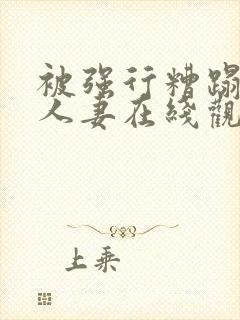 被强行糟蹋
人妻在线觀
上乘